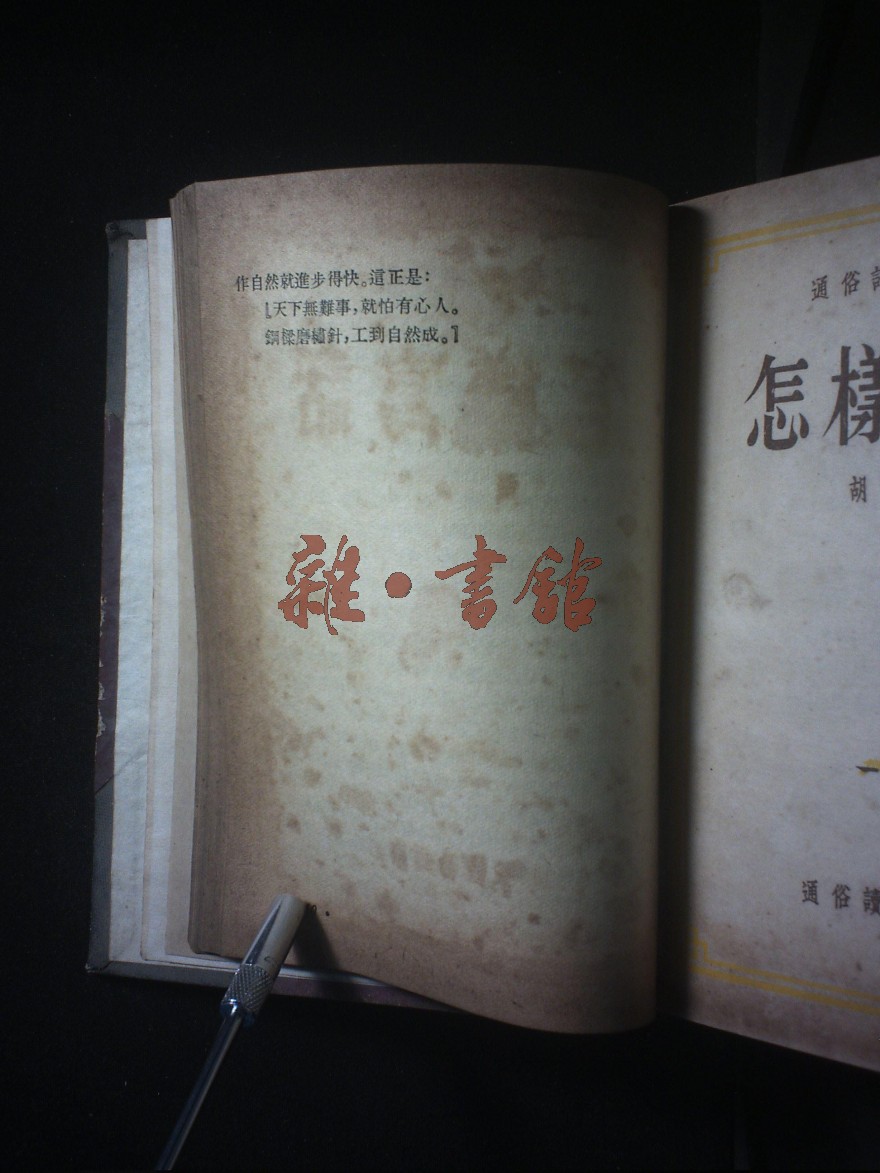 作自然就進步得快。這正是：
「天下無難事，就怕有心人。
鋼樑磨繡針，工到自然成。」
雜·書館
通俗讀
怎樣
胡
通俗讀